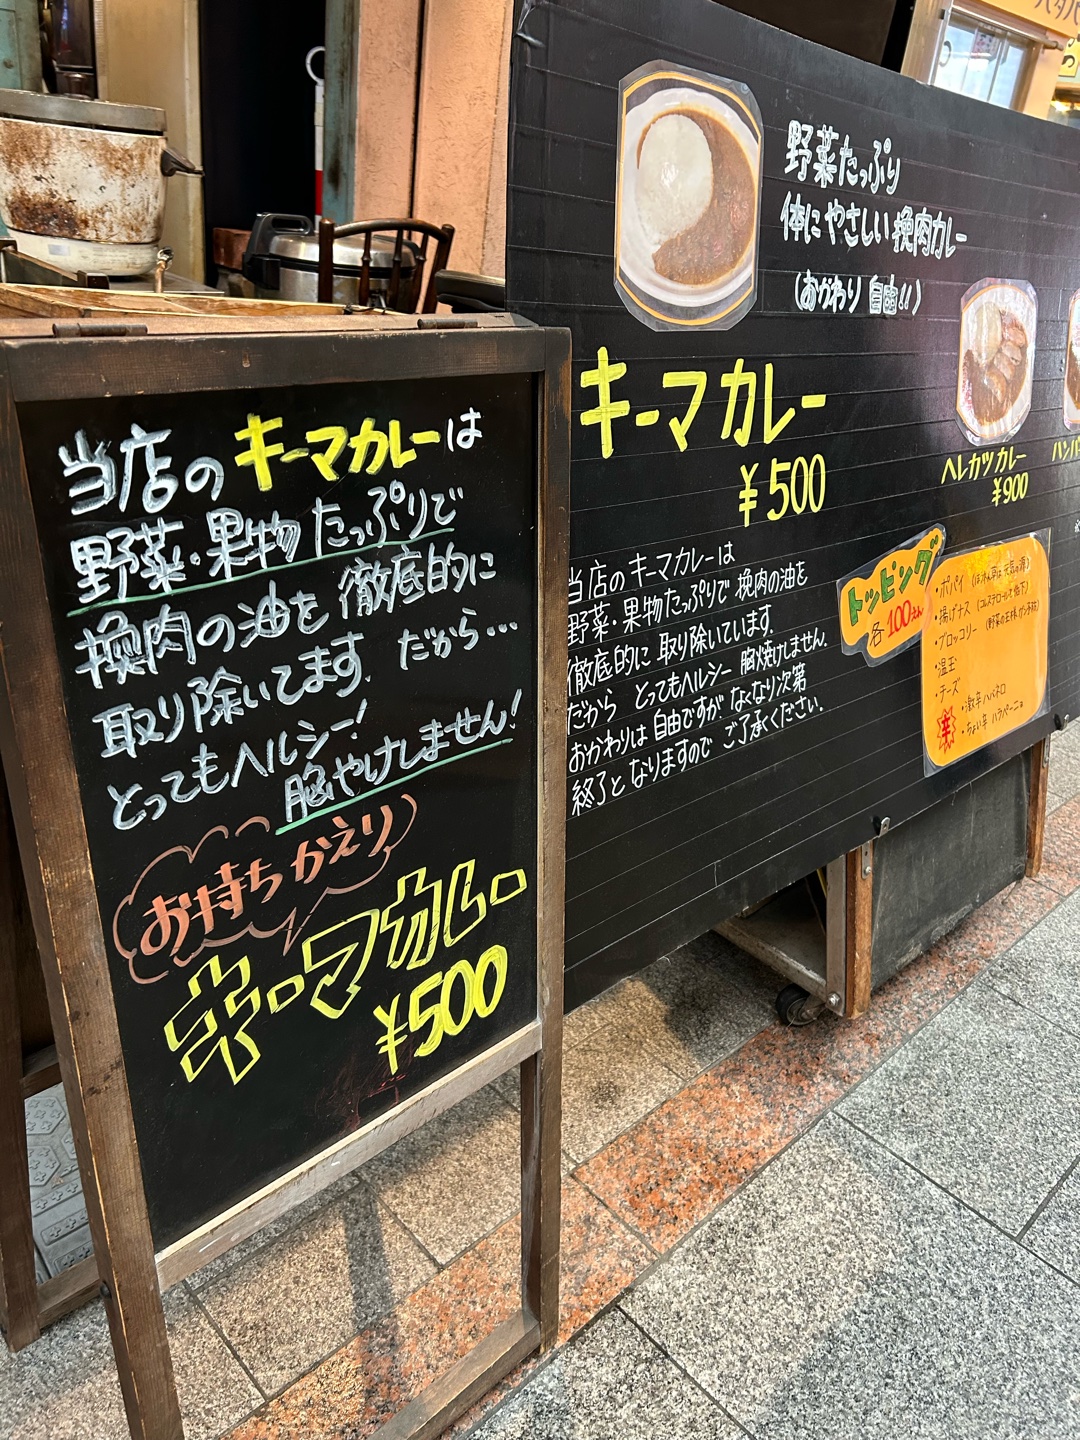 当店のキーマカレーは
野菜・果物たっぷりで
挽肉の油を徹底的に
取り除いてます。だから…
とってもヘルシー!
胸やけしません!
お持ちかえり
キーマカレー
¥500
野菜たっぷり
体にやさしい挽肉カレー
(おかわり自由!!)
キーマカレー
¥500
当店のキーマカレーは
野菜・果物たっぷりで挽肉の油を
徹底的に取り除いています。
だからとってもヘルシー胸焼けしません。
おかわりは自由ですがなくなり次第
終了となりますのでご了承ください。
ヘレカツカレー
¥900
ハンバ
トッピング
各100えん
・ポパイ(ほうれん草は元気の源)
・揚げナス(コレステロールを低下)
・ブロッコリー
・温玉
・チーズ
辛
・激辛ハバネロ
・ちょい辛ハラペーニョ